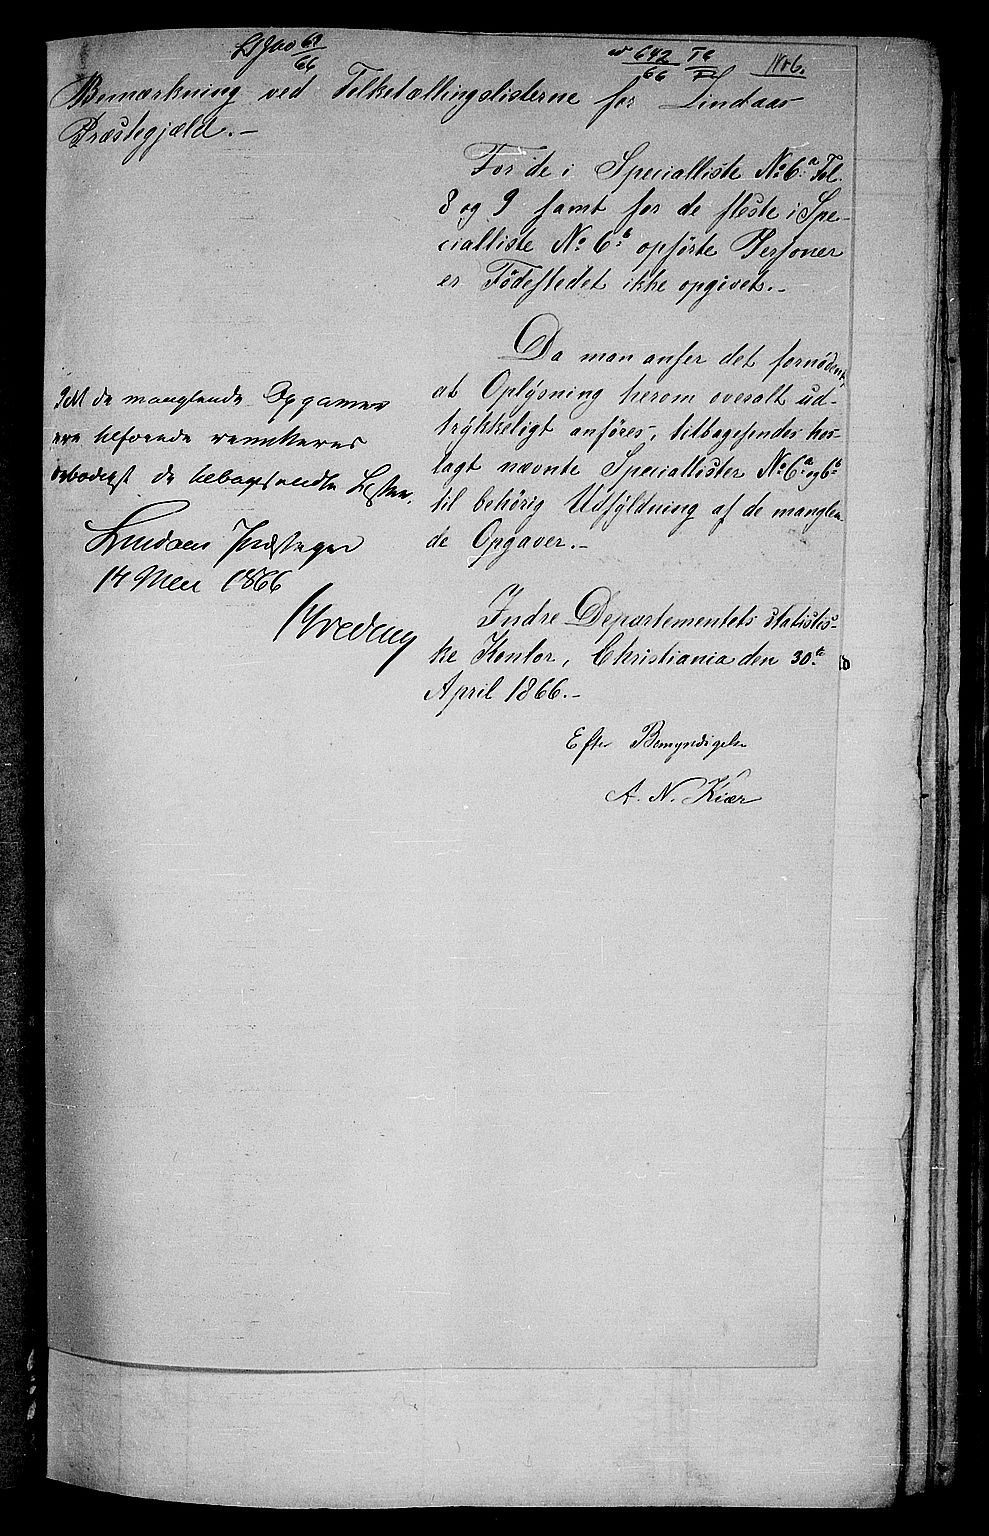 61/66
642/66
No 6.
Bemærkning ved Folketællingslisterne for Lindaas
Præstegjæld.-
For de i Specialliste No 6.a Fol.
8 og 9 samt for de fleste i Spe-
cialliste No 6b opførte Personer
er Fødestedet ikke opgivet.-
Da man anser det fornødent,
at Oplysning herom overalt ud-
trykkeligt anføres, tilbagesendes hos-
lagt nævnte Speciallister No 6a og 6b
til behörig Udfyldning af de manglen
de Opgaver.-
Indre Departementets statistis-
ke Kontor, Christiania den 30te
April 1866.-
Efter Bemyndigelse
A. N. Kiær
de manglende Opgaver
ere tilføiede remitteres
ærbødigst de tilbagesendte Lister.
Lindaas Præstegaard
14 Mai 1866